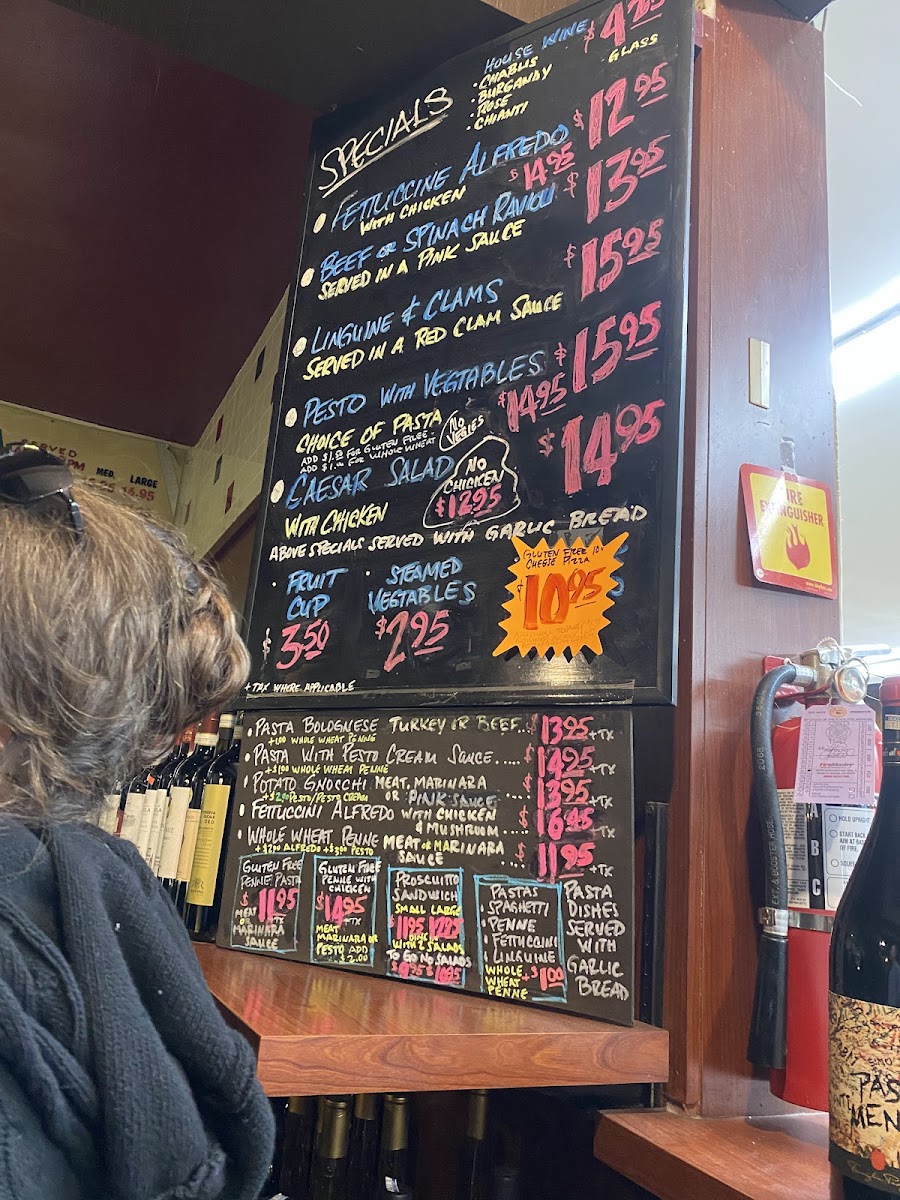 SPECIALS
HOUSE WINE $4.25
GLASS
• CHABLIS
• BURGANDY
• ROSE
• CHIANTI
FETTUCCINE ALFREDO $12.95
WITH CHICKEN $14.95
BEEF OR SPINACH RAVIOLI $13.95
SERVED IN A PINK SAUCE
LINGUINE & CLAMS $15.95
SERVED IN A RED CLAM SAUCE
PESTO WITH VEGTABLES $15.95
CHOICE OF PASTA NO VEGIES $14.95
ADD $1.00 FOR GLUTEN FREE.
ADD $1.00 FOR WHOLE WHEAT
CAESAR SALAD $14.95
WITH CHICKEN
NO CHICKEN $12.95
ABOVE SPECIALS SERVED WITH GARLIC BREAD
• FRUIT CUP $3.50
• STEAMED VEGTABLES $2.95
GLUTEN FREE 10"
CHEESE PIZZA
$10.95
+ TAX WHERE APPLICABLE
• PASTA BOLOGNESE TURKEY OR BEEF.. $13.95 +TX
+1.00 WHOLE WHEAT PENNE
• PASTA WITH PESTO CREAM SAUCE..... $14.95 +TX
+$1.00 WHOLE WHEAT PENNE
• POTATO GNOCCHI MEAT, MARINARA $13.95 +TX
+$2.00 PESTO/PESTO CREAM OR PINK SAUCE
• FETTUCCINI ALFREDO WITH CHICKEN
& MUSHROOM.... $16.45 +TX
• WHOLE WHEAT PENNE MEAT OR MARINARA
+$2.00 ALFREDO +$3.00 PESTO SAUCE ... $11.95 +TX
GLUTEN FREE
PENNE PASTA
$11.95
+TX
MEAT
OR
MARINARA
SAUCE
GLUTEN FREE
PENNE WITH
CHICKEN
$14.95
+TX
MEAT
MARINARA OR
PESTO ADD
$2.00
PROSCUITTO
SANDWICH
SMALL LARGE
$11.95 12.95
DINE IN
WITH 2 SALADS
TO GO NO SALADS
$9.95 $10.95
PASTAS
• SPAGHETTI
• PENNE
• FETTUCCINI
• LINGUINE
WHOLE
WHEAT
PENNE
+$1.00
PASTA
DISHES
SERVED
WITH
GARLIC
BREAD
MED. LARGE
FIRE
EXTINGUISHER
HOLD UPRIGHT
START BACK
A
B
C
PAS
MEN